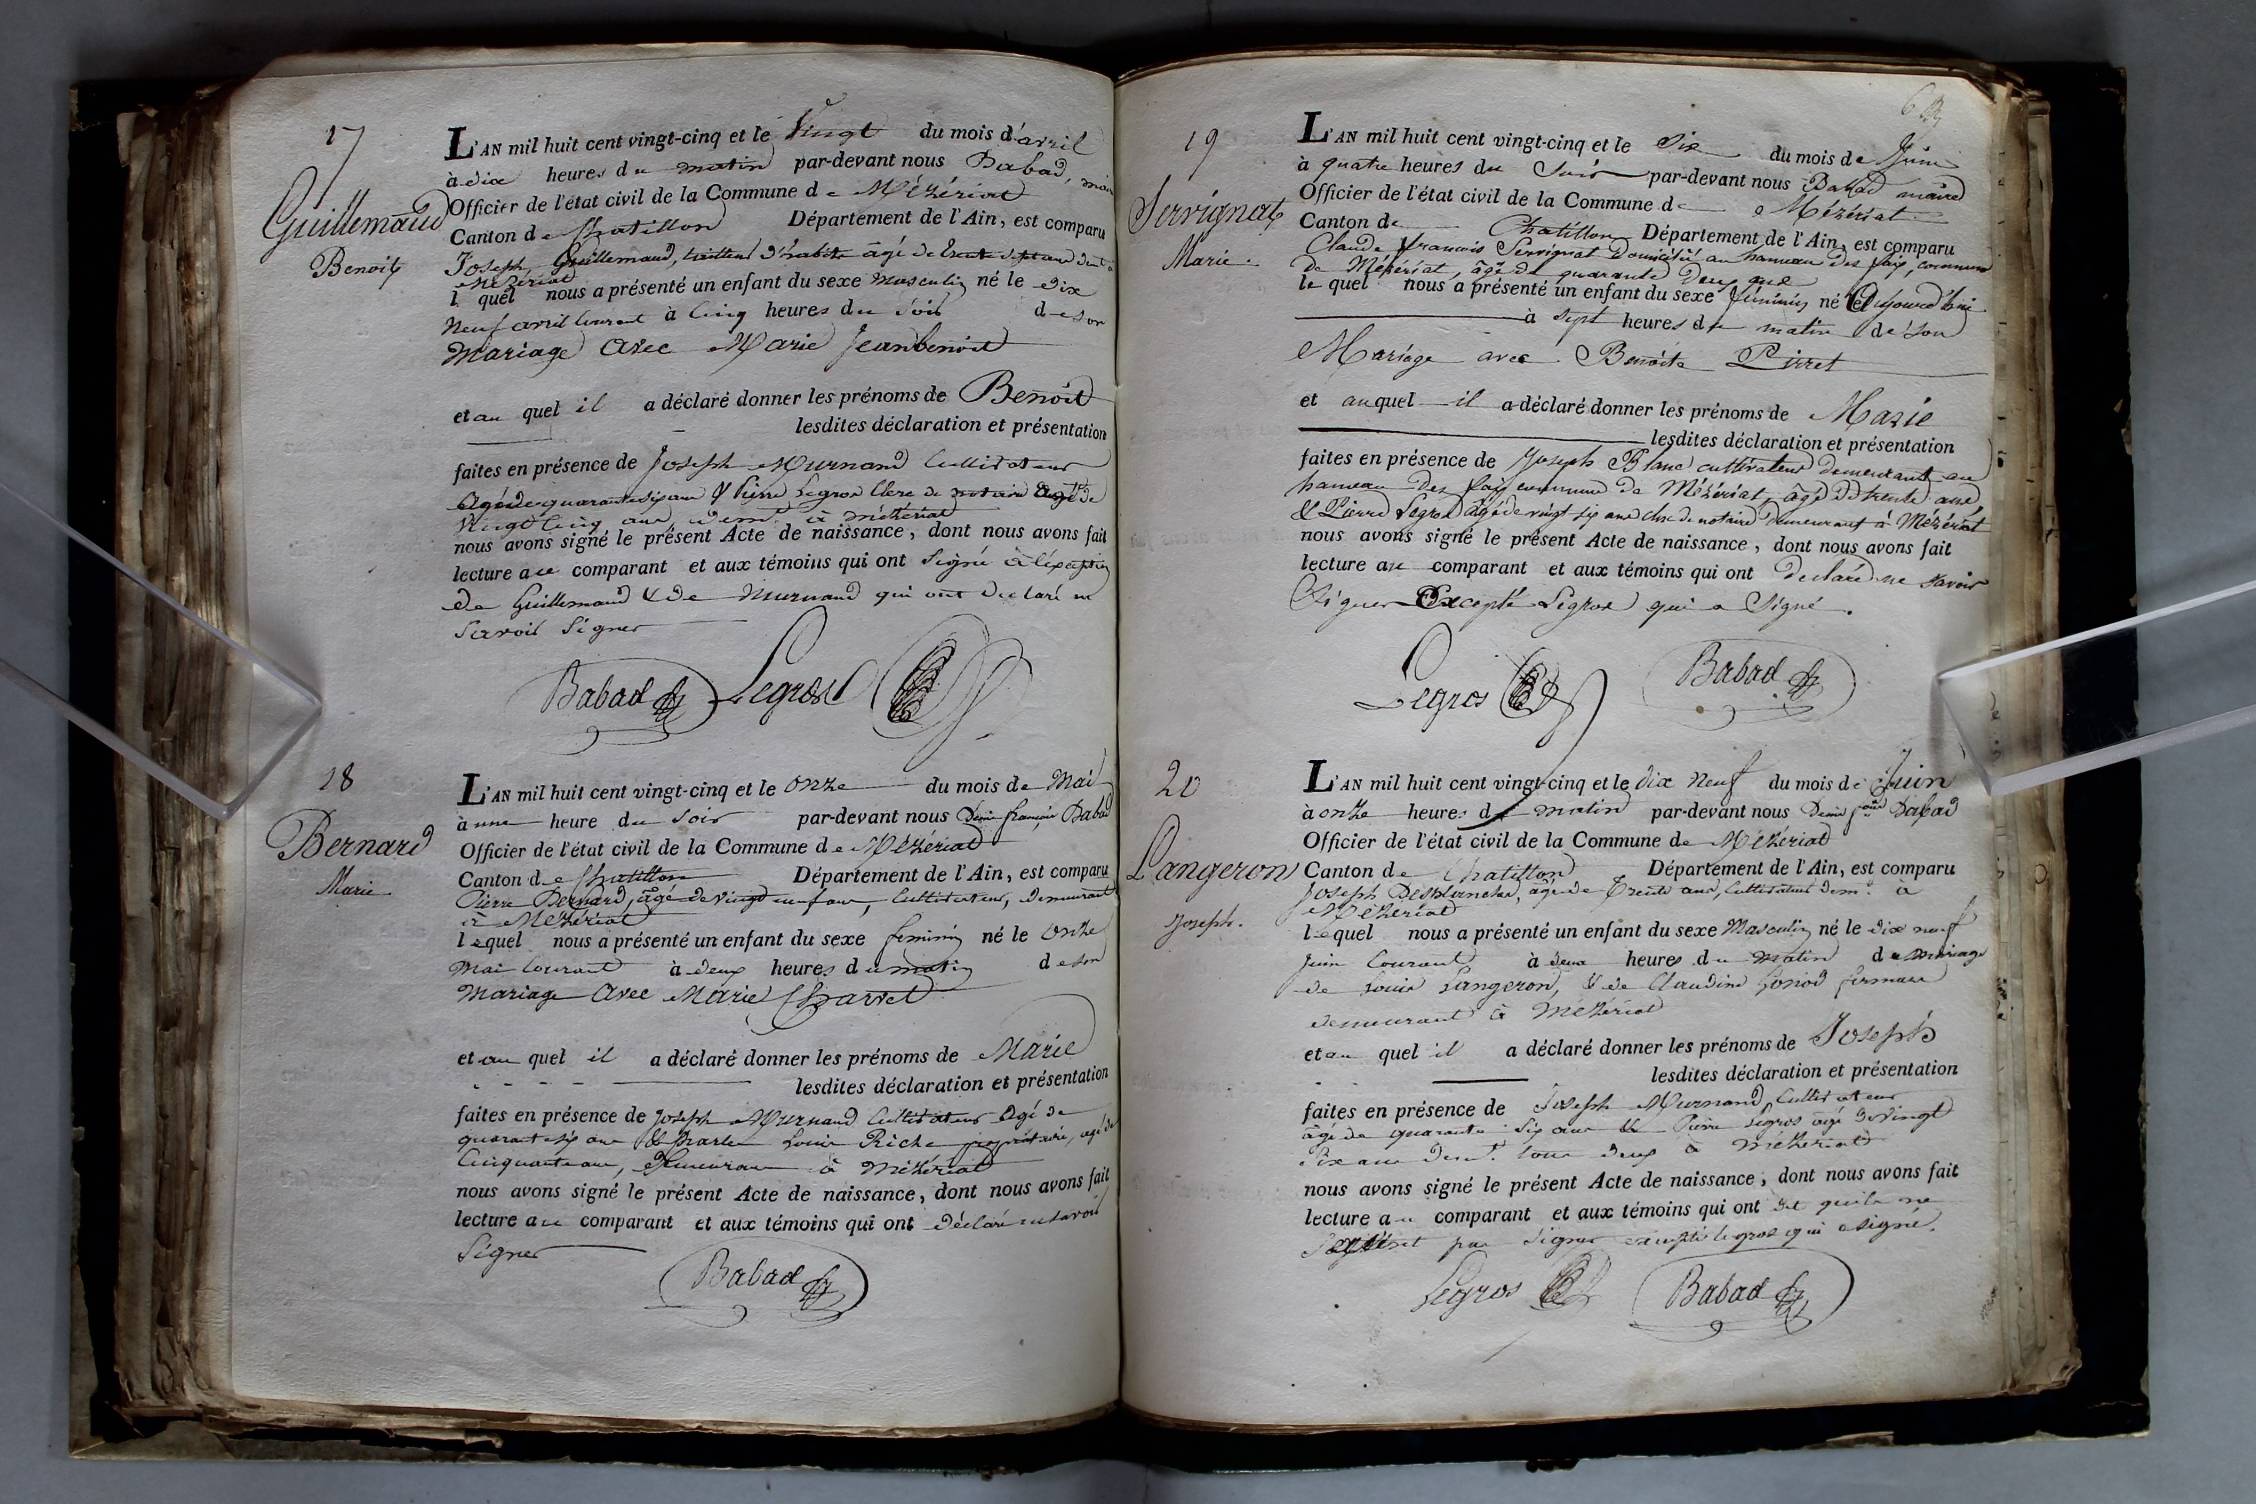 17
Guillemaud
Benoit
L'AN mil huit cent vingt-cinq et le Vingt du mois d'avril
à dix heures du matin par-devant nous Babad, maire
Officier de l'état civil de la Commune de Mézériat
Canton de Chatillon Département de l'Ain, est comparu
Joseph Guillemaud, tailleur d'habits âgé de trente sept ans demt à
Mézériat
lequel nous a présenté un enfant du sexe masculin né le dix
Neuf avril Courant à Cinq heures du soir de son
Mariage avec Marie Jeanbenoit
et au quel il a déclaré donner les prénoms de Benoit
lesdites déclaration et présentation
faites en présence de Joseph Murnand Cultivateur
Agé de quarante six ans & Pierre Legros Clerc de notaire âgé de
Vingt Cinq ans demt à Mézériat
nous avons signé le présent Acte de naissance, dont nous avons fait
lecture au comparant et aux témoins qui ont signé à l'éxception
de Guillemaud & de Murnand qui ont déclaré ne
Savoir Signer
Babad Legros
18
Bernard
Marie
L'AN mil huit cent vingt-cinq et le onze du mois de Mai
à une heure du Soir par-devant nous Denis françois Babad
Officier de l'état civil de la Commune de Mézériat
Canton de Chatillon Département de l'Ain, est comparu
Pierre Bernard, âgé de vingt neuf ans, Cultivateur, Demeurant
à Mézériat
lequel nous a présenté un enfant du sexe feminin né le Onze
Mai Courant à deux heures du matin de son
Mariage Avec Marie Charvet
et au quel il a déclaré donner les prénoms de Marie
lesdites déclaration et présentation
faites en présence de Joseph Murnand Cultivateur Agé de
quarante six ans & Charles Louis Riche propriétaire, agé de
Cinquante ans, Demeurans à Mézériat
nous avons signé le présent Acte de naissance, dont nous avons fait
lecture au comparant et aux témoins qui ont déclaré ne savoir
Signer
Babad
19
Servignat
Marie.
L'AN mil huit cent vingt-cinq et le Six du mois de Juin
à quatre heures du Soir par-devant nous Babad maire
Officier de l'état civil de la Commune de Mézériat
Canton de Chatillon Département de l'Ain, est comparu
Claude francois Servignat domicilié au hameau des fays, commune
de Mézériat, âgé de quarante Deux ans
lequel nous a présenté un enfant du sexe féminin né le Aujourd'hui
à sept heures du matin de son
Mariage avec Benoite Pirret
et auquel il a déclaré donner les prénoms de Marie
lesdites déclaration et présentation
faites en présence de Joseph Blanc cultivateur demeurant au
hameau des fays commune de Mézériat, âgé de trente ans,
& Pierre Legros âgé de vingt six ans clerc de notaire demeurant à Mézériat
nous avons signé le présent Acte de naissance, dont nous avons fait
lecture au comparant et aux témoins qui ont déclaré ne savoir
Signer Excepté Legros qui a Signé.
Legros Babad
20
Langeron
Joseph.
L'AN mil huit cent vingt-cinq et le dix Neuf du mois de Juin
à onze heures du matin par-devant nous Denis fçois Babad
Officier de l'état civil de la Commune de Mézériat
Canton de Chatillon Département de l'Ain, est comparu
Joseph Desplanches, âgé de Trente ans, Cultivateur demt à
Mézériat
lequel nous a présenté un enfant du sexe Masculin né le dix neuf
Juin Courant à deux heures du matin de mariage
de Louis Langeron, & de Claudine Gonod fermiers
demeurant à Mézériat
et au quel il a déclaré donner les prénoms de Joseph
lesdites déclaration et présentation
faites en présence de Joseph Murnand, Cultivateur
âgé de quarante six ans & Pierre Legros âgé de vingt
Six ans demt. tous deux à Mézériat
nous avons signé le présent Acte de naissance, dont nous avons fait
lecture au comparant et aux témoins qui ont dit qu'ils ne
pas Signer excepté legros qui a signé.
Legros Babad